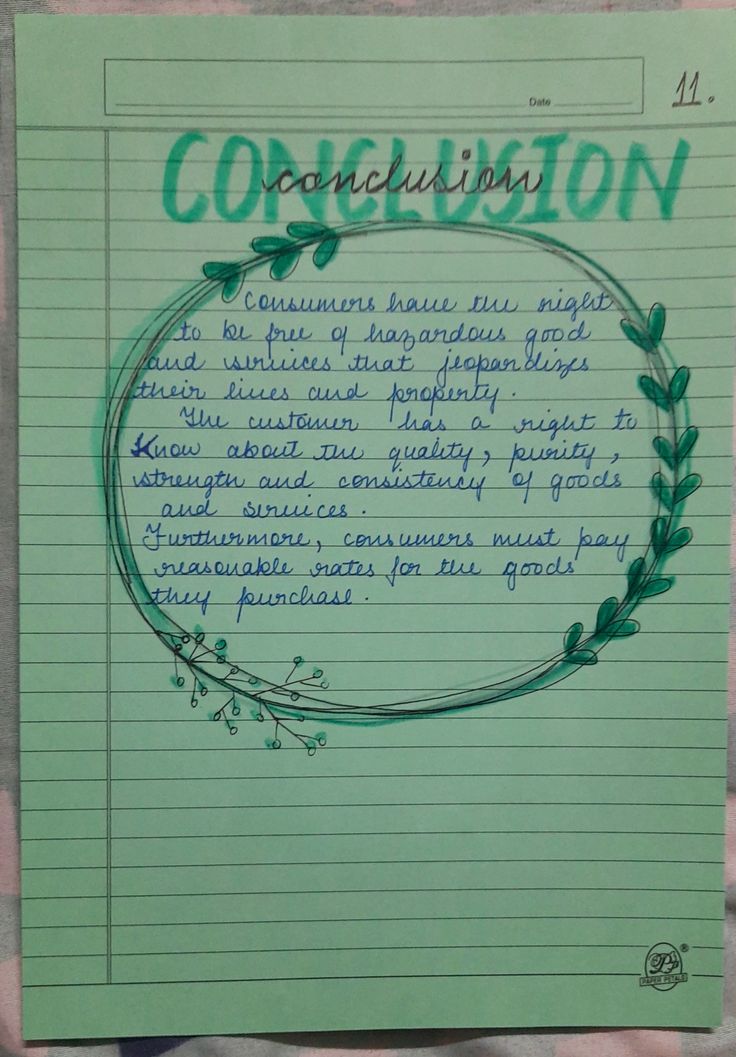 Date
11.
CONCLUSION
conclusion
Consumers have the right
to be free of hazardous good
and services that jeopardizes
their lives and property.
The customer has a right to
Know about the quality, purity,
strength and consistency of goods
and services.
Furthermore, consumers must pay
reasonable rates for the goods
they purchase.
PAPER PETALS